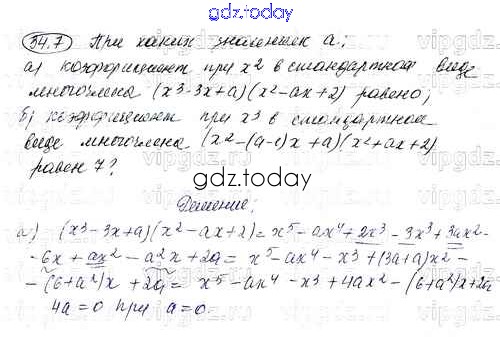 gdz.today
34.7 При каких значениях а:
а) коэффициент при x2 в стандартном виде
многочлена (x3-3x+a)(x²-ax+2) равен 0;
б) коэффициент при x3 в стандартном
виде многочлена (x²-(a-1)x+a)(x²+ax+2)
равен 7?
gdz.today
Решение:
а) (x³-3x+a)(x²-ax+2)=x⁵-ax⁴+2x³-3x³+3ax²-
-6x+ax²-a²x+2a=x⁵-ax⁴-x³+(3a+a)x²-
-(6+a²)x+2a=x⁵-ax⁴-x³+4ax²-(6+a²)x+2a
4a=0 при a=0.